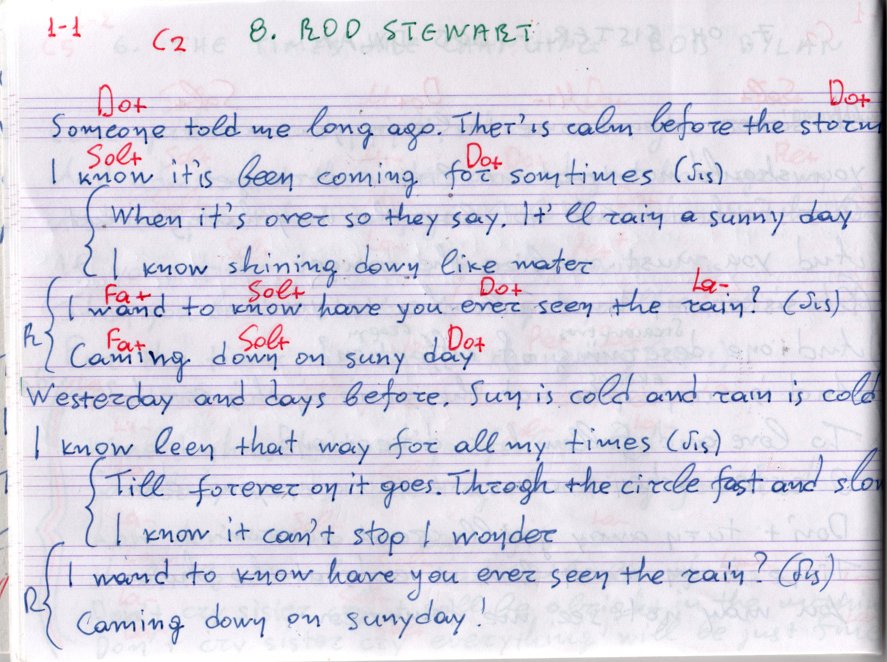 1-1 C2 8. ROD STEWART
Do+ Do+
Someone told me long ago. Ther'is calm before the storm
Sol+ Do+
I know it's been coming for somtimes (Jis)
When it's over so they say. It'll rain a sunny day
I know shining down like water
Fa+ Sol+ Do+ La-
R I wand to know have you ever seen the rain? (Jis)
Fa+ Sol+ Do+
Caming down on suny day
Westerday and days before. Sun is cold and rain is cold
I know leen that way for all my times (Jis)
Till forever on it goes. Throgh the circle fast and slow
I know it can't stop I wonder
R I wand to know have you ever seen the rain? (Jis)
Caming down on sunyday!